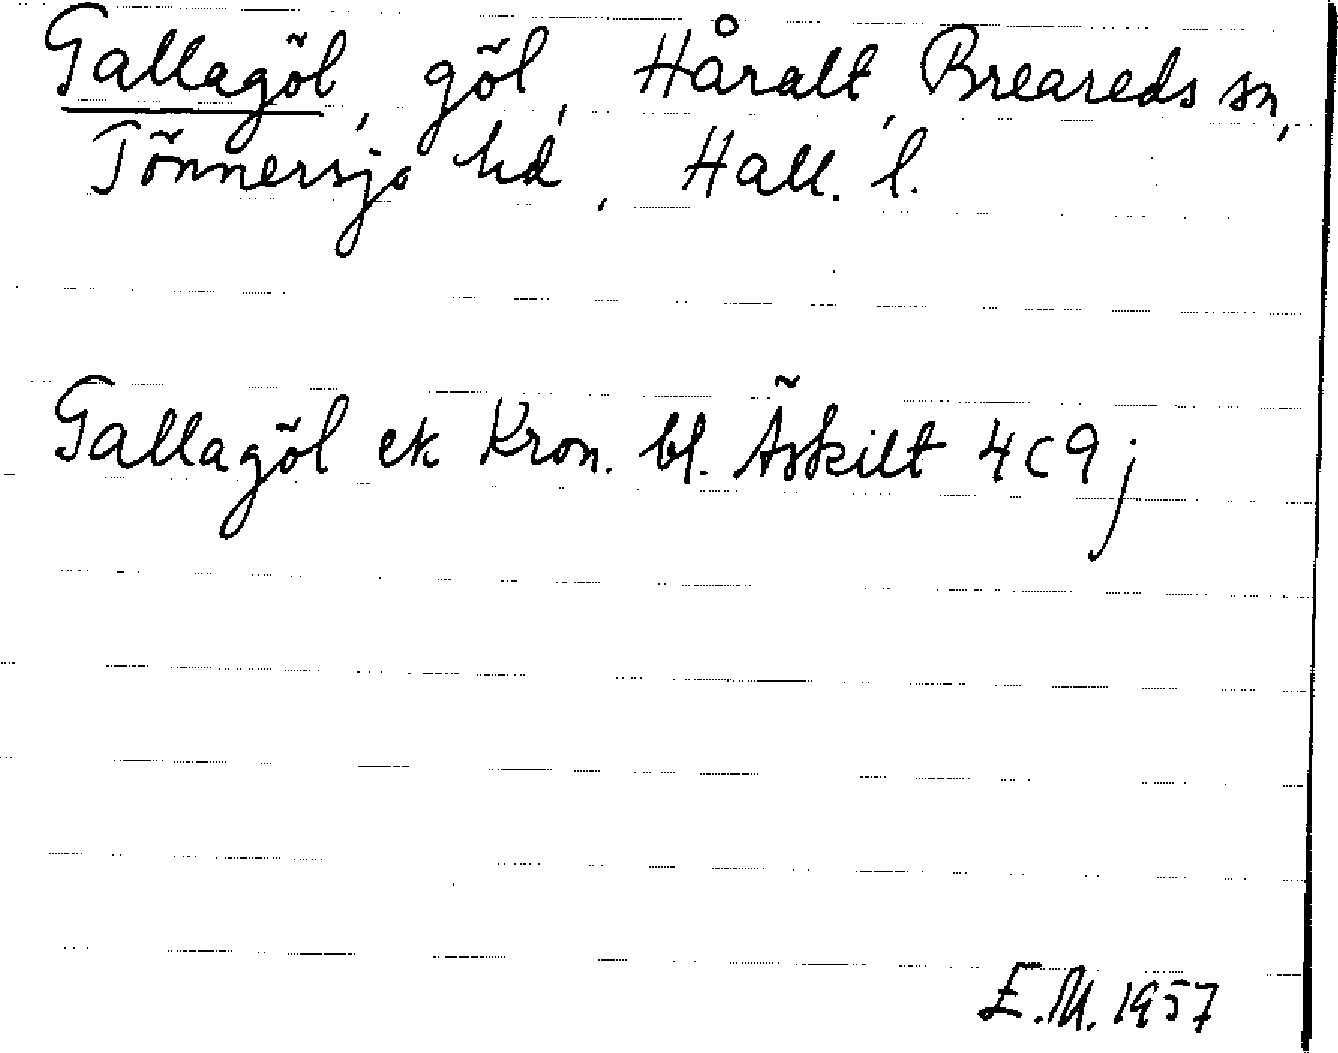 Gallagöl, göl, Håralt, Breareds sn,
Tönnersjo hd, Hall. l.
Gallagöl ek Kron. bl. Äskilt 4c9j
E.M. 1957